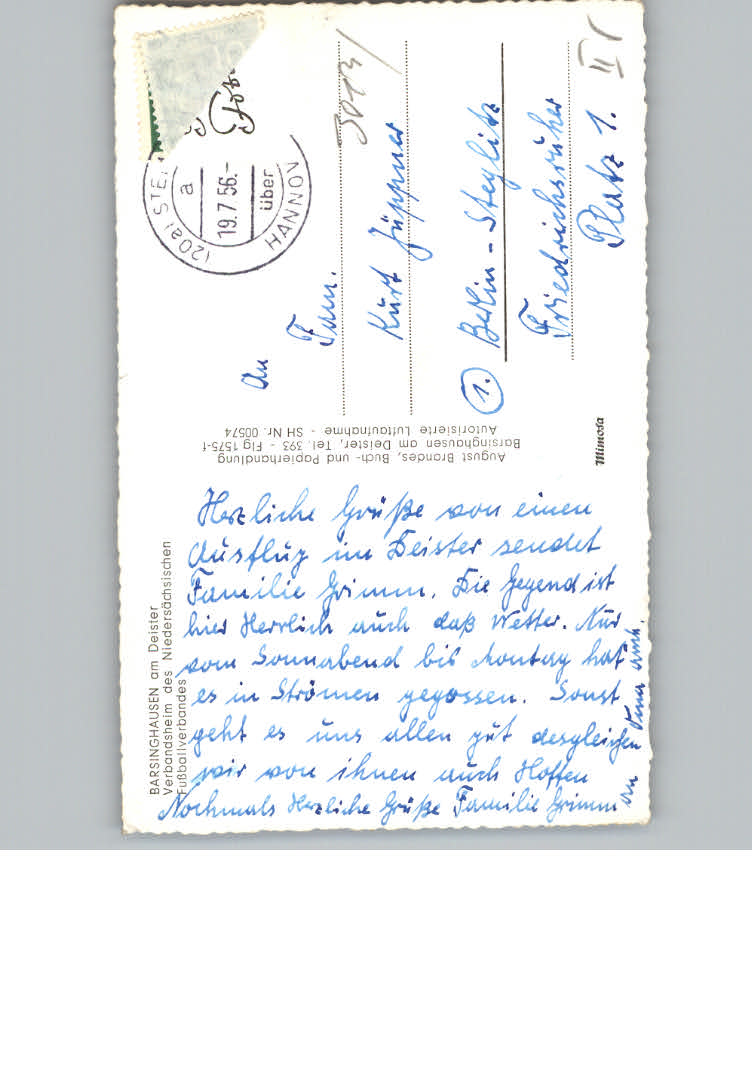 BARSINGHAUSEN am Deister
Verbandsheim des Niedersächsischen
Fußballverbandes
Herzliche Grüße von einen
Ausflug im Deister sendet
Familie Grimm. Die Gegend ist
hier Herrlich auch daß Wetter. Nur
vom Sonnabend bis Montag hat
es in Strömen gegossen. Sonst
geht es uns allen gut desgleichen
wir von ihnen auch Hoffen
Nochmals Herzliche Grüße Familie Grimm
an auch.
August Brandes, Buch- und Papierhandlung
Barsinghausen am Deister, Tel. 393 - Flg 1575-f
Autorisierte Luftaufnahme - SH Nr. 00574
Mimosa
(20a) STE
a
19.7.56.-
über
HANNOV
3013/
II
An
Fam.
Kurt Jüppner
1. Berlin-Steglitz
Friedrichsruher
Platz 1.